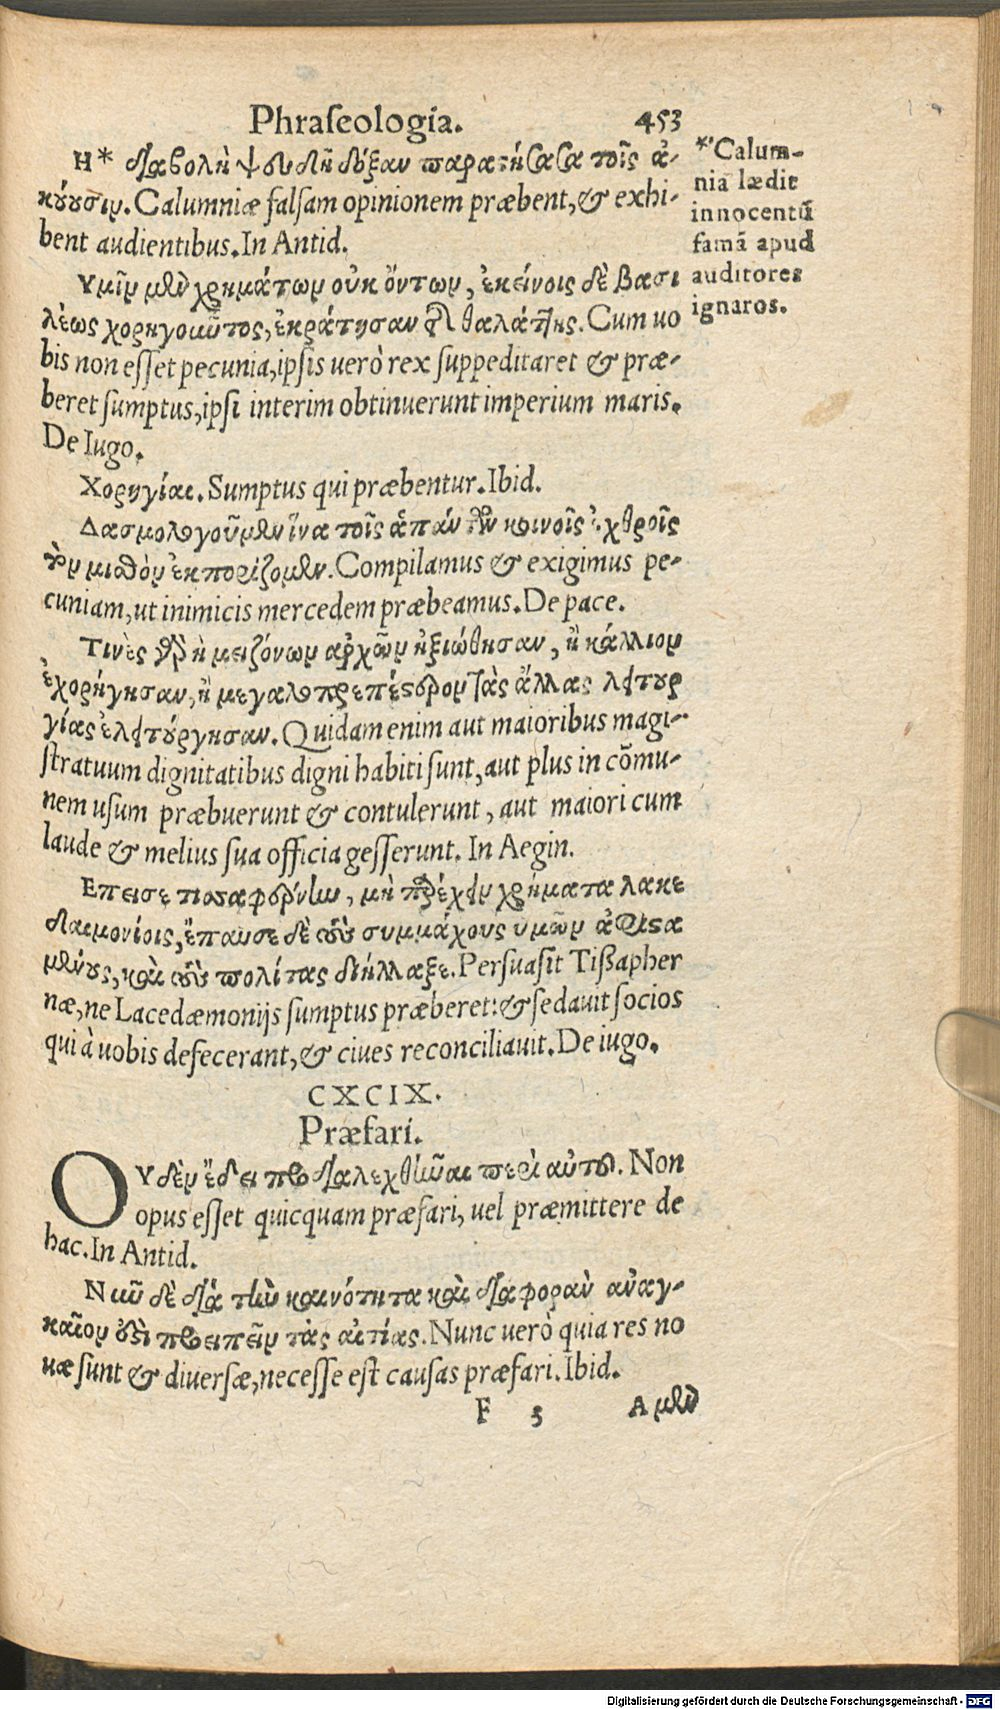 Phraſeologia. 453
Η* διαβολὴ ψευδῆ δόξαν παρατήσασα τοῖς ἀ-
κούουσιν. Calumniæ falſam opinionem præbent, & exhi-
bent audientibus. In Antid.
*Calum-
nia lædit
innocentũ
famã apud
auditores
ignaros.
Υμῖν μὲν χρημάτων οὐκ ὄντων, ἐκείνοις δὲ βασι
λέως χορηγοῦντος, ἐκράτησαν τῆς θαλάττης. Cum uo
bis non eſſet pecunia, ipſis uerò rex ſuppeditaret & præ-
beret ſumptus, ipſi interim obtinuerunt imperium maris.
De Iugo.
Χορηγίαι. Sumptus qui præbentur. Ibid.
Δασμολογοῦμεν ἵνα τοῖς ἁπάντων κοινοῖς ἐχθροῖς
τὸν μισθὸν ἐκπορίζομεν. Compilamus & exigimus pe-
cuniam, ut inimicis mercedem præbeamus. De pace.
Τινὲς γὰρ ἢ μειζόνων ἀρχῶν ἠξιώθησαν, ἢ κάλλιον
ἐχορήγησαν, ἢ μεγαλοπρεπέστερον τὰς ἄλλας λειτουρ
γίας ἐλειτούργησαν. Quidam enim aut maioribus magi-
ſtratuum dignitatibus digni habiti ſunt, aut plus in cõmu-
nem uſum præbuerunt & contulerunt, aut maiori cum
laude & melius ſua officia geſſerunt. In Aegin.
Επεισε τισσαφέρνην, μὴ παρέχειν χρήματα λακε
δαιμονίοις, ἔπαυσε δὲ τοὺς συμμάχους ὑμῶν ἀφιστα
μένους, καὶ τοὺς πολίτας διήλλαξε. Perſuaſit Tißapher
næ, ne Lacedæmonijs ſumptus præberet: & ſedauit ſocios
qui à uobis defecerant, & ciues reconciliauit. De iugo.
CXCIX.
Præfari.
ΟΥδὲν ἔδει προδιαλεχθῆναι περὶ αὐτοῦ. Non
opus eſſet quicquam præfari, uel præmittere de
hac. In Antid.
Νῦν δὲ διὰ τὴν καινότητα καὶ διαφορὰν ἀναγ-
καῖον ἐστὶ προειπεῖν τὰς αἰτίας. Nunc uerò quia res no
uæ ſunt & diuerſæ, neceſſe eſt cauſas præfari. Ibid.
F 5 Α μὲν
Digitalisierung gefördert durch die Deutsche Forschungsgemeinschaft - DFG